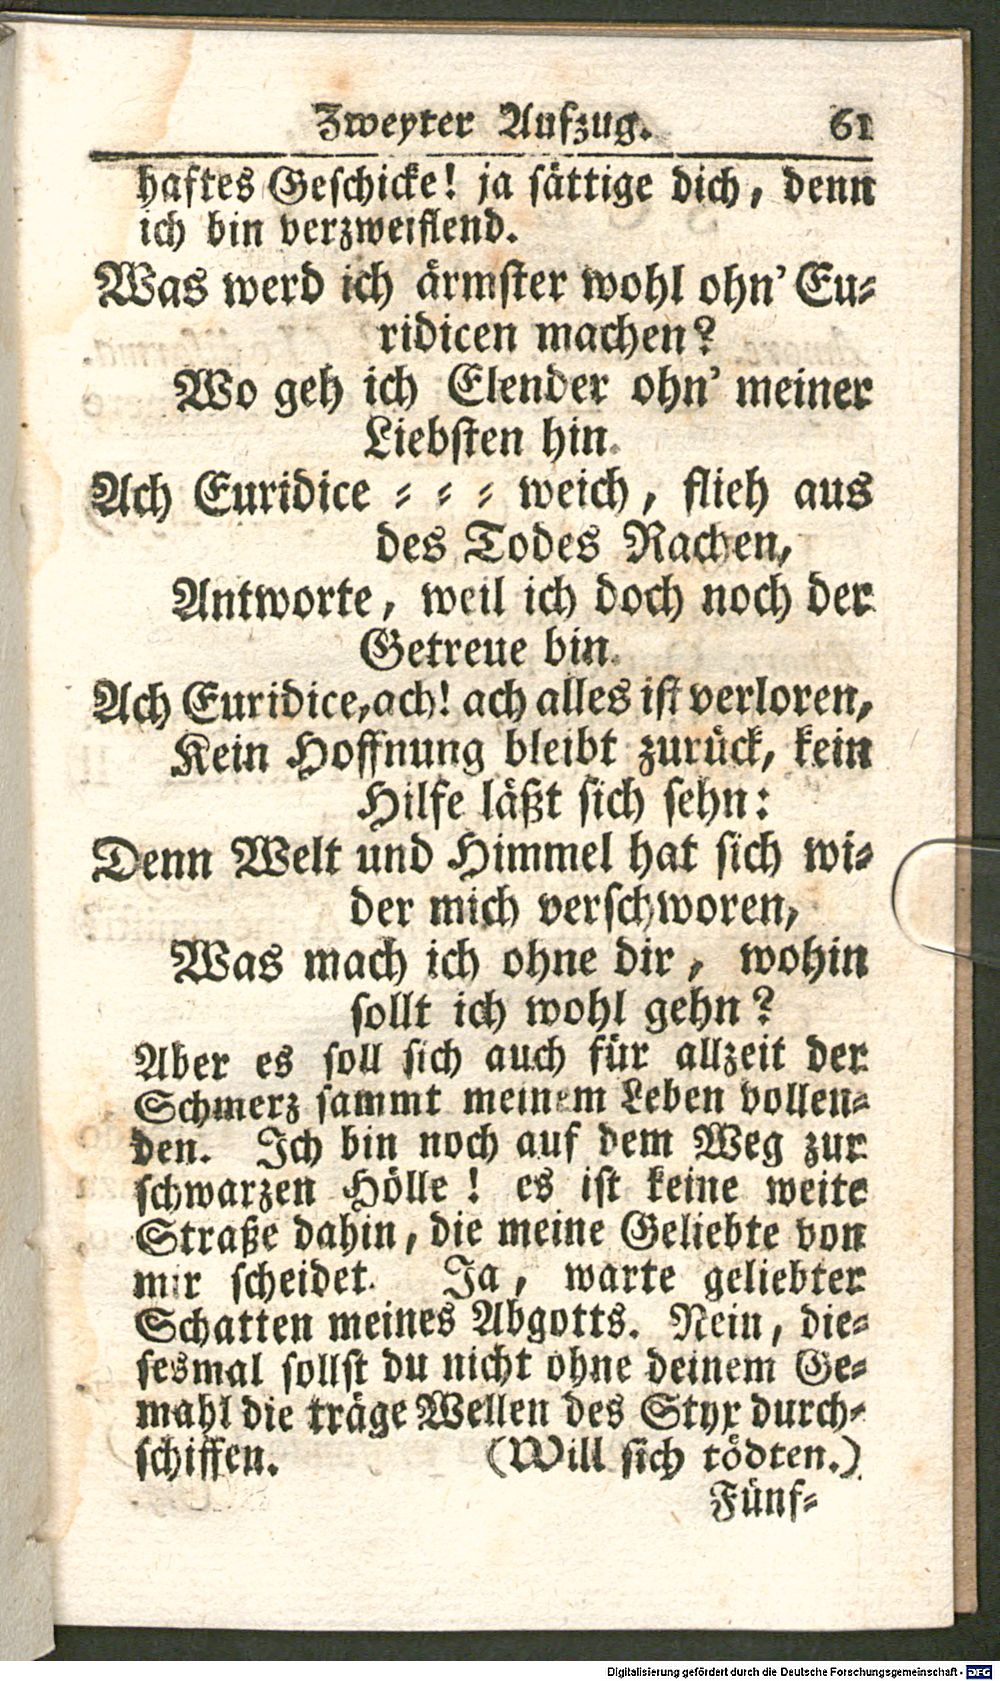 Zweyter Aufzug. 61
haftes Geschicke! ja sättige dich, denn
ich bin verzweiflend.
Was werd ich ärmster wohl ohn' Eu-
ridicen machen?
Wo geh ich Elender ohn' meiner
Liebsten hin.
Ach Euridice - - - weich, flieh aus
des Todes Rachen,
Antworte, weil ich doch noch der
Getreue bin.
Ach Euridice, ach! ach alles ist verloren,
Kein Hoffnung bleibt zurück, kein
Hilfe läßt sich sehn:
Denn Welt und Himmel hat sich wi-
der mich verschworen,
Was mach ich ohne dir, wohin
sollt ich wohl gehn?
Aber es soll sich auch für allzeit der
Schmerz sammt meinem Leben vollen-
den. Ich bin noch auf dem Weg zur
schwarzen Hölle! es ist keine weite
Straße dahin, die meine Geliebte von
mir scheidet. Ja, warte geliebter
Schatten meines Abgotts. Nein, die-
sesmal sollst du nicht ohne deinem Ge-
mahl die träge Wellen des Styx durch-
schiffen. (Will sich tödten.)
Fünf-
Digitalisierung gefördert durch die Deutsche Forschungsgemeinschaft - DFG